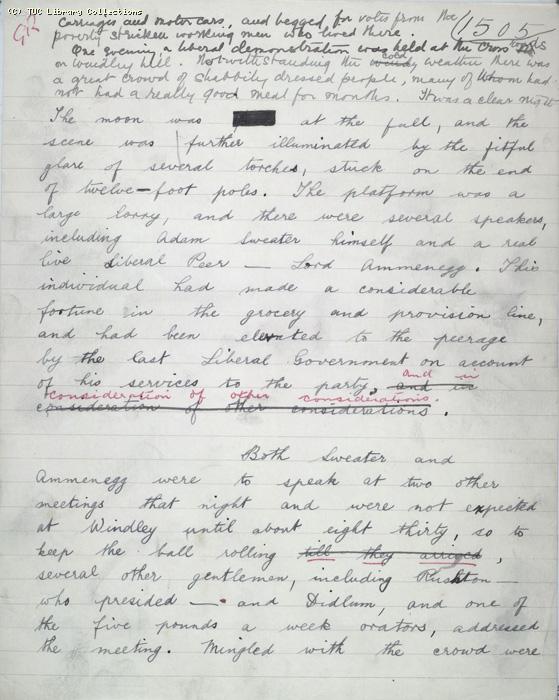 (C) TUC Library Collections
Carriages and motor cars, and begged for votes from the
1505
poverty striken working men who lived there.
One evening a Liberal demonstration was held at the Cross Roads
on Windley hill. Notwithstanding the cold weather there was
a great crowd of shabbily dressed people, many of whom had
not had a really good meal for months. It was a clear night
The moon was at the full, and the
scene was further illuminated by the fitful
glare of several torches, stuck on the end
of twelve-foot poles. The platform was a
large lorry, and there were several speakers,
including Adam Sweater himself and a real
live Liberal Peer — Lord Ammenegg. This
individual had made a considerable
fortune in the grocery and provision line,
and had been elevated to the peerage
by the last Liberal Government on account
of his services to the party, and in
consideration of other considerations.
consideration of other considerations.
Both Sweater and
Ammenegg were to speak at two other
meetings that night and were not expected
at Windley until about eight thirty, so to
keep the ball rolling till they arrived,
several other gentlemen, including Rushton —
who presided — and Didlum, and one of
the five pounds a week orators, addressed
the meeting. Mingled with the crowd were